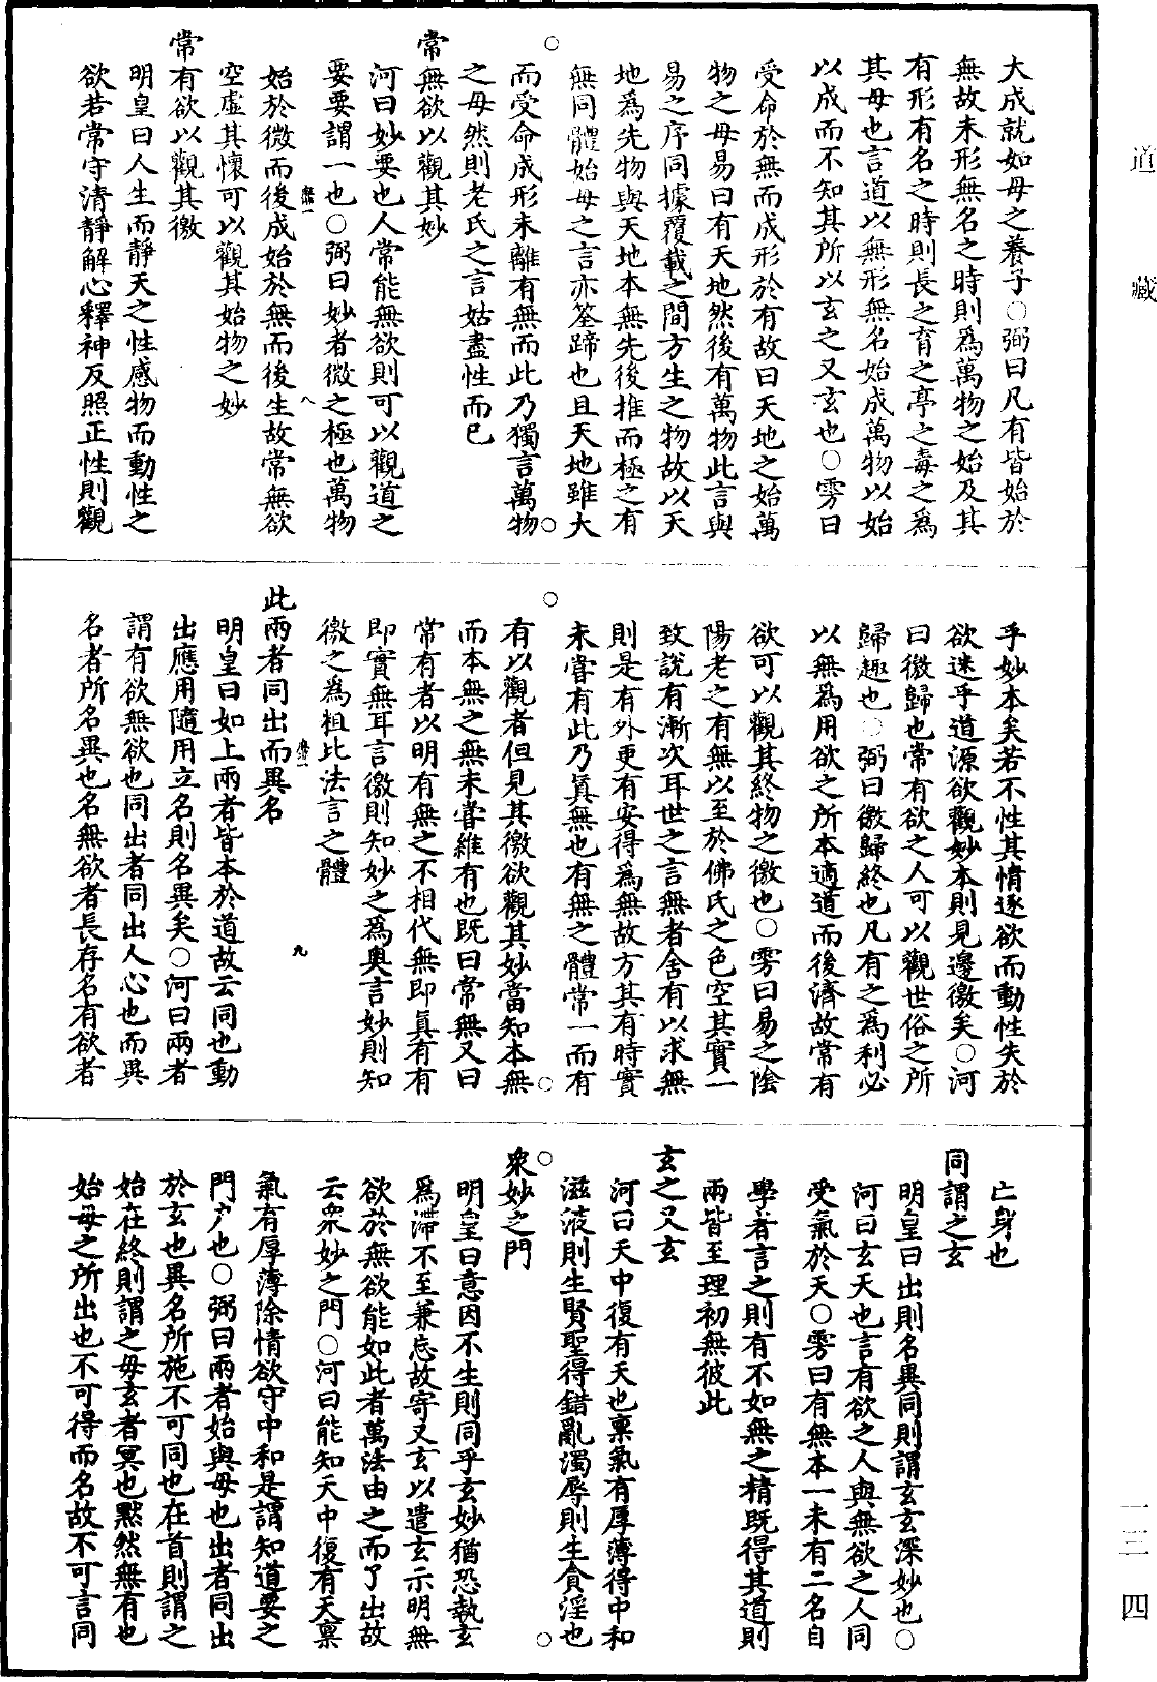 道藏
大成就如母之養子○弼曰凡有皆始於
無故未形無名之時則爲萬物之始及其
有形有名之時則長之育之亭之毒之爲
其母也言道以無形無名始成萬物以始
以成而不知其所以玄之又玄也○雱曰
受命於無而成形於有故曰天地之始萬
物之母易曰有天地然後有萬物此言與
易之序同據覆載之間方生之物故以天
地爲先物與天地本無先後推而極之有
無同體始母之言亦筌蹄也且天地雖大
○
而受命成形未離有無而此乃獨言萬物
○
之母然則老氏之言姑盡性而已
常無欲以觀其妙
河曰妙要也人常能無欲則可以觀道之
要要謂一也○弼曰妙者微之極也萬物
八
始於微而後成始於無而後生故常無欲
空虛其懷可以觀其始物之妙
常有欲以觀其徼
明皇曰人生而靜天之性感物而動性之
欲若常守清靜解心釋神反照正性則觀
乎妙本矣若不性其情逐欲而動性失於
欲迷乎道源欲觀妙本則見邊徼矣○河
曰徼歸也常有欲之人可以觀世俗之所
歸趣也○弼曰徼歸終也凡有之爲利必
以無爲用欲之所本適道而後濟故常有
欲可以觀其終物之徼也○雱曰易之陰
陽老之有無以至於佛氏之色空其實一
致說有漸次耳世之言無者舍有以求無
則是有外更有安得爲無故方其有時實
未嘗有此乃真無也有無之體常一而有
○
有以觀者但見其徼欲觀其妙當知本無
○
而本無之無未嘗維有也既曰常無又曰
常有者以明有無之不相代無即真有有
即實無耳言徼則知妙之爲奧言妙則知
徼之爲粗比法言之體
九
此兩者同出而異名
明皇曰如上兩者皆本於道故云同也動
出應用隨用立名則名異矣○河曰兩者
謂有欲無欲也同出者同出人心也而異
名者所名異也名無欲者長存名有欲者
亡身也
同謂之玄
明皇曰出則名異同則謂玄玄深妙也○
河曰玄天也言有欲之人與無欲之人同
受氣於天○雱曰有無本一未有二名自
學者言之則有不如無之精既得其道則
兩皆至理初無彼此
玄之又玄
河曰天中復有天也稟氣有厚薄得中和
滋液則生賢聖得錯亂濁辱則生貪淫也
○
衆妙之門
○
明皇曰意因不生則同乎玄妙猶恐執玄
爲滯不至兼忘故寄又玄以遣玄示明無
欲於無欲能如此者萬法由之而了出故
云衆妙之門○河曰能知天中復有天稟
氣有厚薄除情欲守中和是謂知道要之
門戶也○弼曰兩者始與母也出者同出
於玄也異名所施不可同也在首則謂之
始在終則謂之母玄者冥也默然無有也
始母之所出也不可得而名故不可言同
一三四